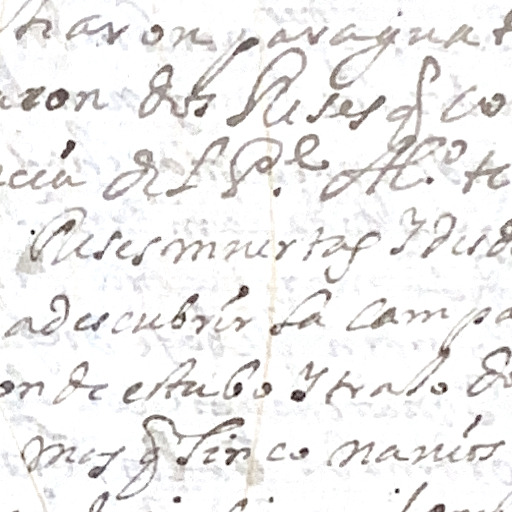 traron paragua
aron dos Reses q̃ co
ncia del P.e Al.o te
Reses muertas y desd
a descubrir la campa
onde estubo y traxo do
mos q̃ sinco navios